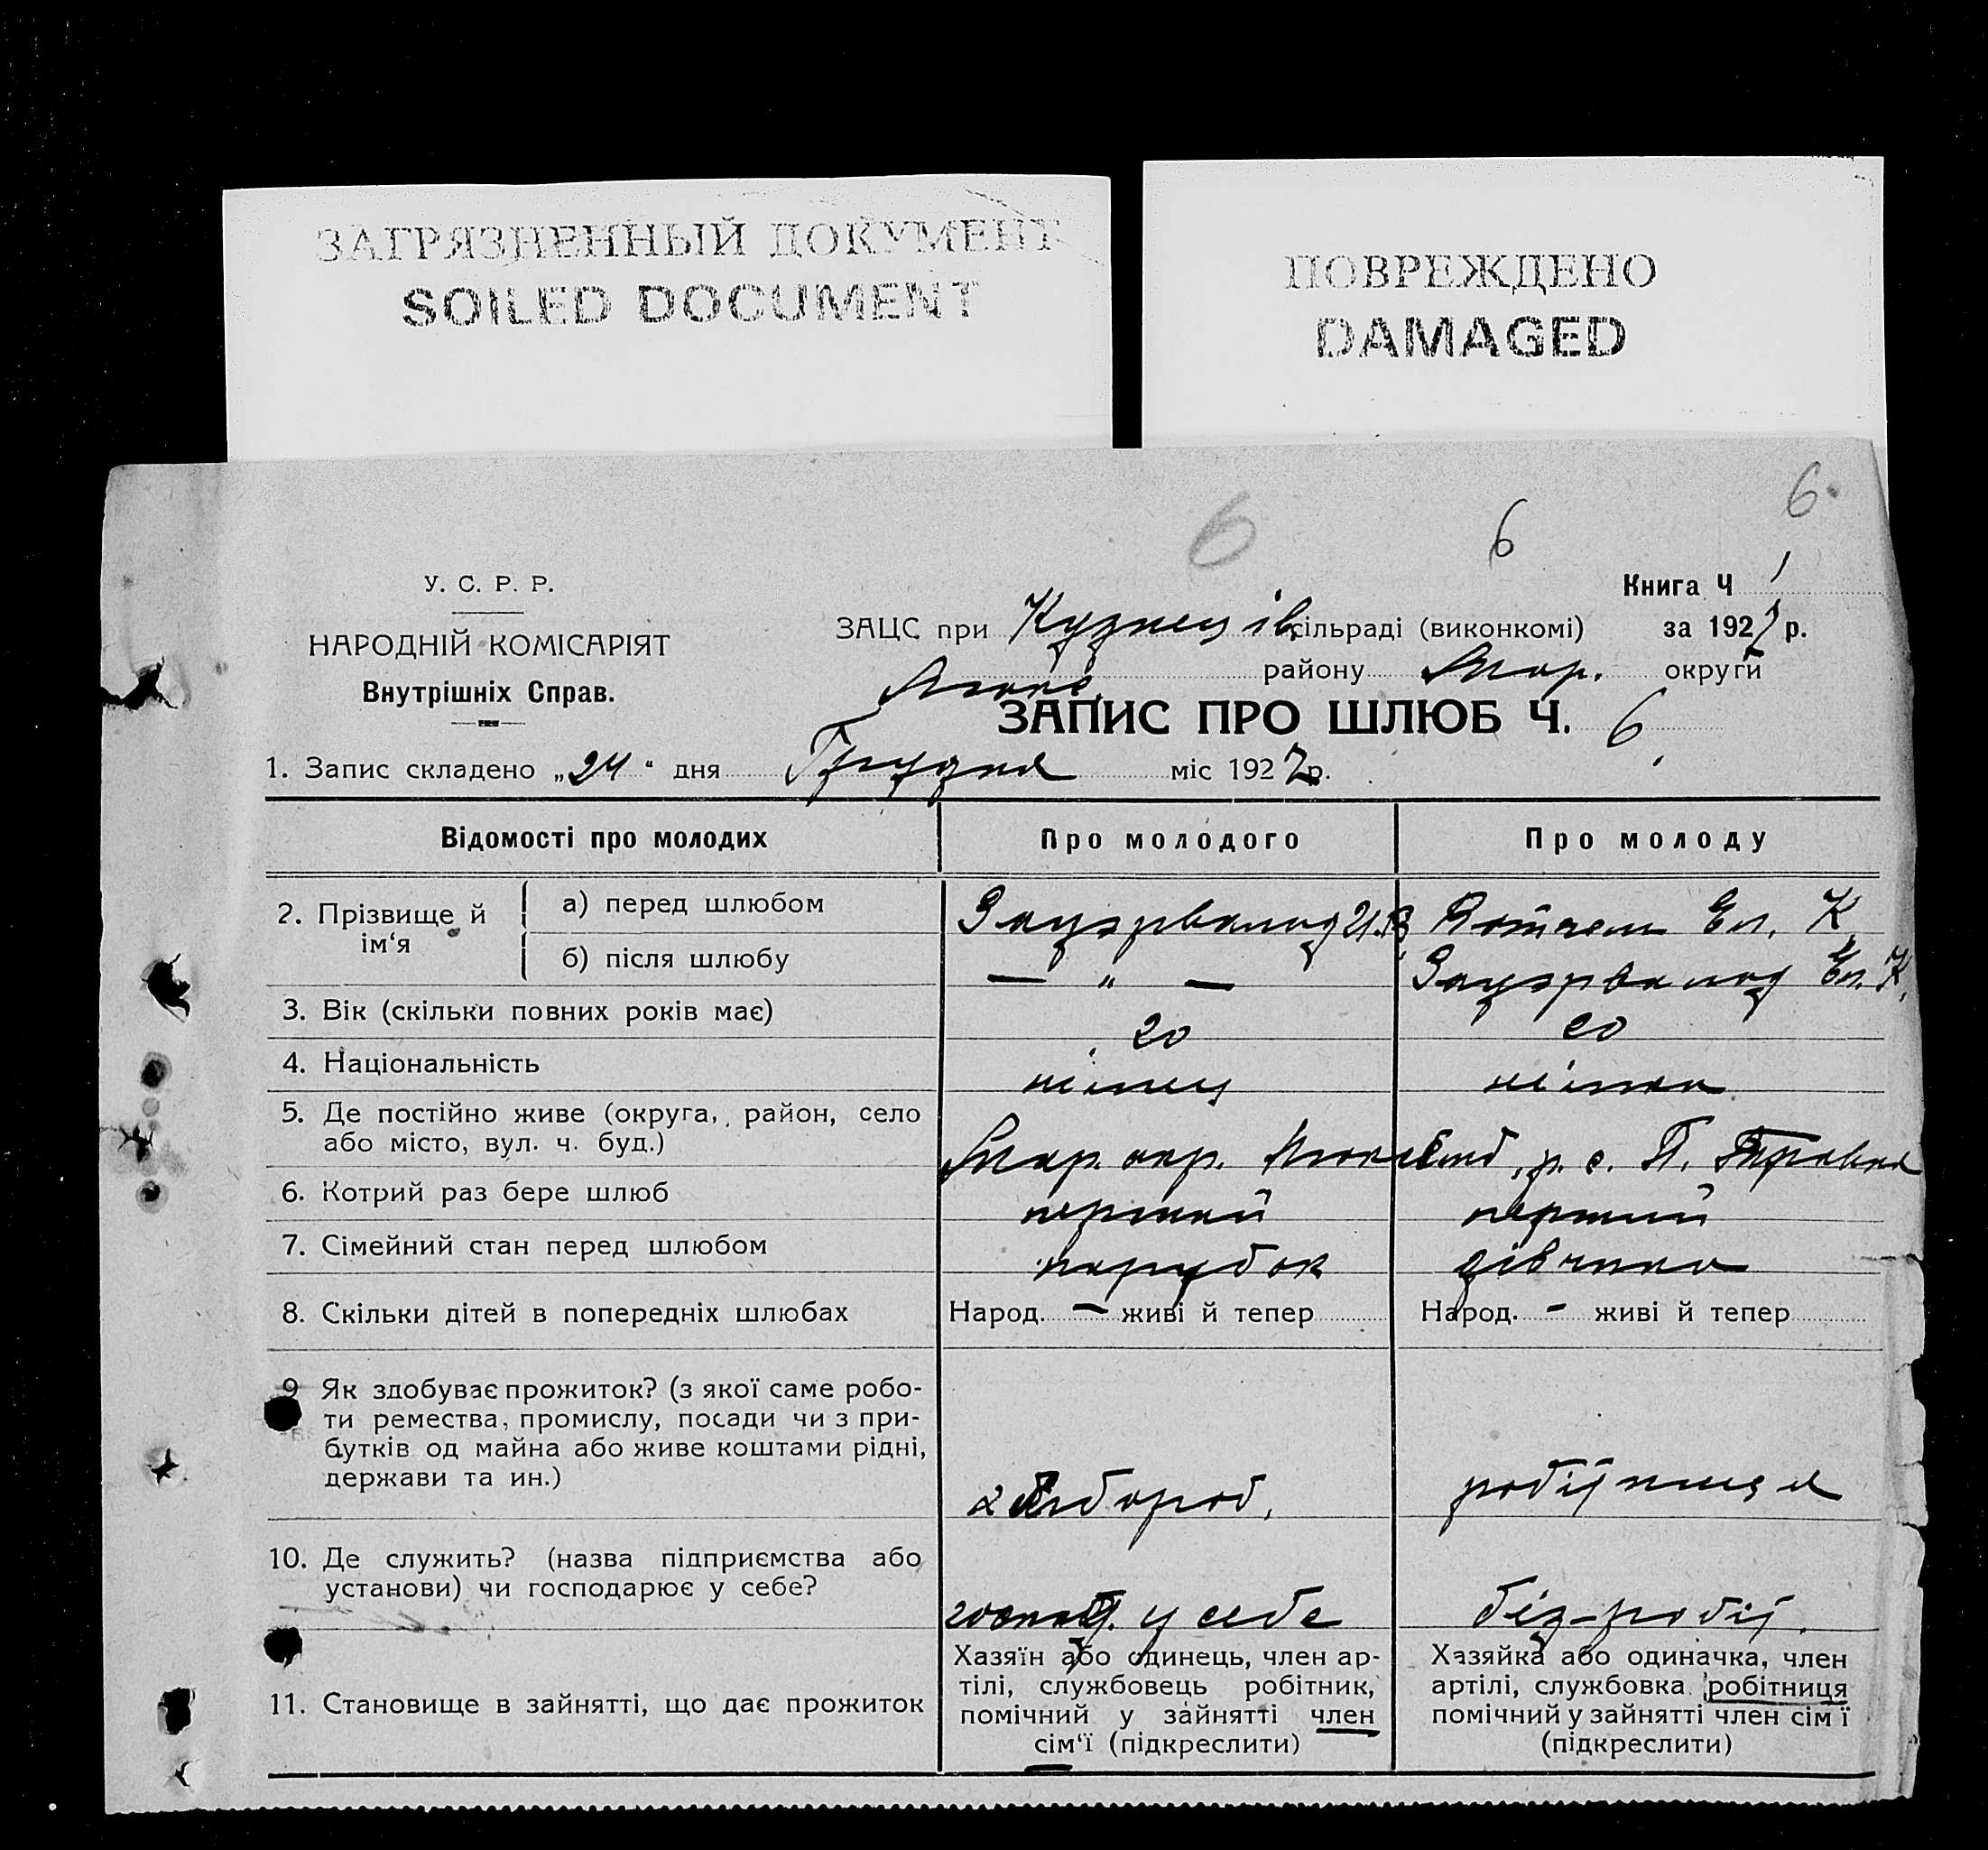 ЗАГРЯЗНЕННЫЙ ДОКУМЕНТ
SOILED DOCUMENT
ПОВРЕЖДЕНО
DAMAGED
6 6 6.
У. С. Р. Р.
НАРОДНІЙ КОМІСАРІЯТ
Внутрішніх Справ.
Книга Ч 1
ЗАЦС при Кузнеців сільраді (виконкомі) за 1927 р.
району Мар. округи
ЗАПИС ПРО ШЛЮБ Ч. 6
1. Запис складено „24“ дня Грудня міс 1927 р.
Відомості про молодих Про молодого Про молоду
2. Прізвище й ім‘я
а) перед шлюбом Зауэрвальд Ел. К.
б) після шлюбу — „ — Зауэрвальд Ел. К.
3. Вік (скільки повних років має) 20 20
4. Національність німец німка
5. Де постійно живе (округа, район, село
або місто, вул. ч. буд.) Мар. окр. р. с.
6. Котрий раз бере шлюб перший перший
7. Сімейний стан перед шлюбом парубок дівчина
8. Скільки дітей в попередніх шлюбах Народ. — живі й тепер Народ. - живі й тепер
9 Як здобуває прожиток? (з якої саме робо-
ти ремества, промислу, посади чи з при-
бутків од майна або живе коштами рідні,
держави та ин.) хлібороб, робітниця
10. Де служить? (назва підприємства або
установи) чи господарює у себе? господ. у себе без-робіт.
11. Становище в зайнятті, що дає прожиток
Хазяїн або одинець, член ар-
тілі, службовець робітник,
помічний у зайнятті член
сім‘ї (підкреслити)
Хазяйка або одиначка, член
артілі, службовка робітниця
помічний у зайнятті член сім ї
(підкреслити)